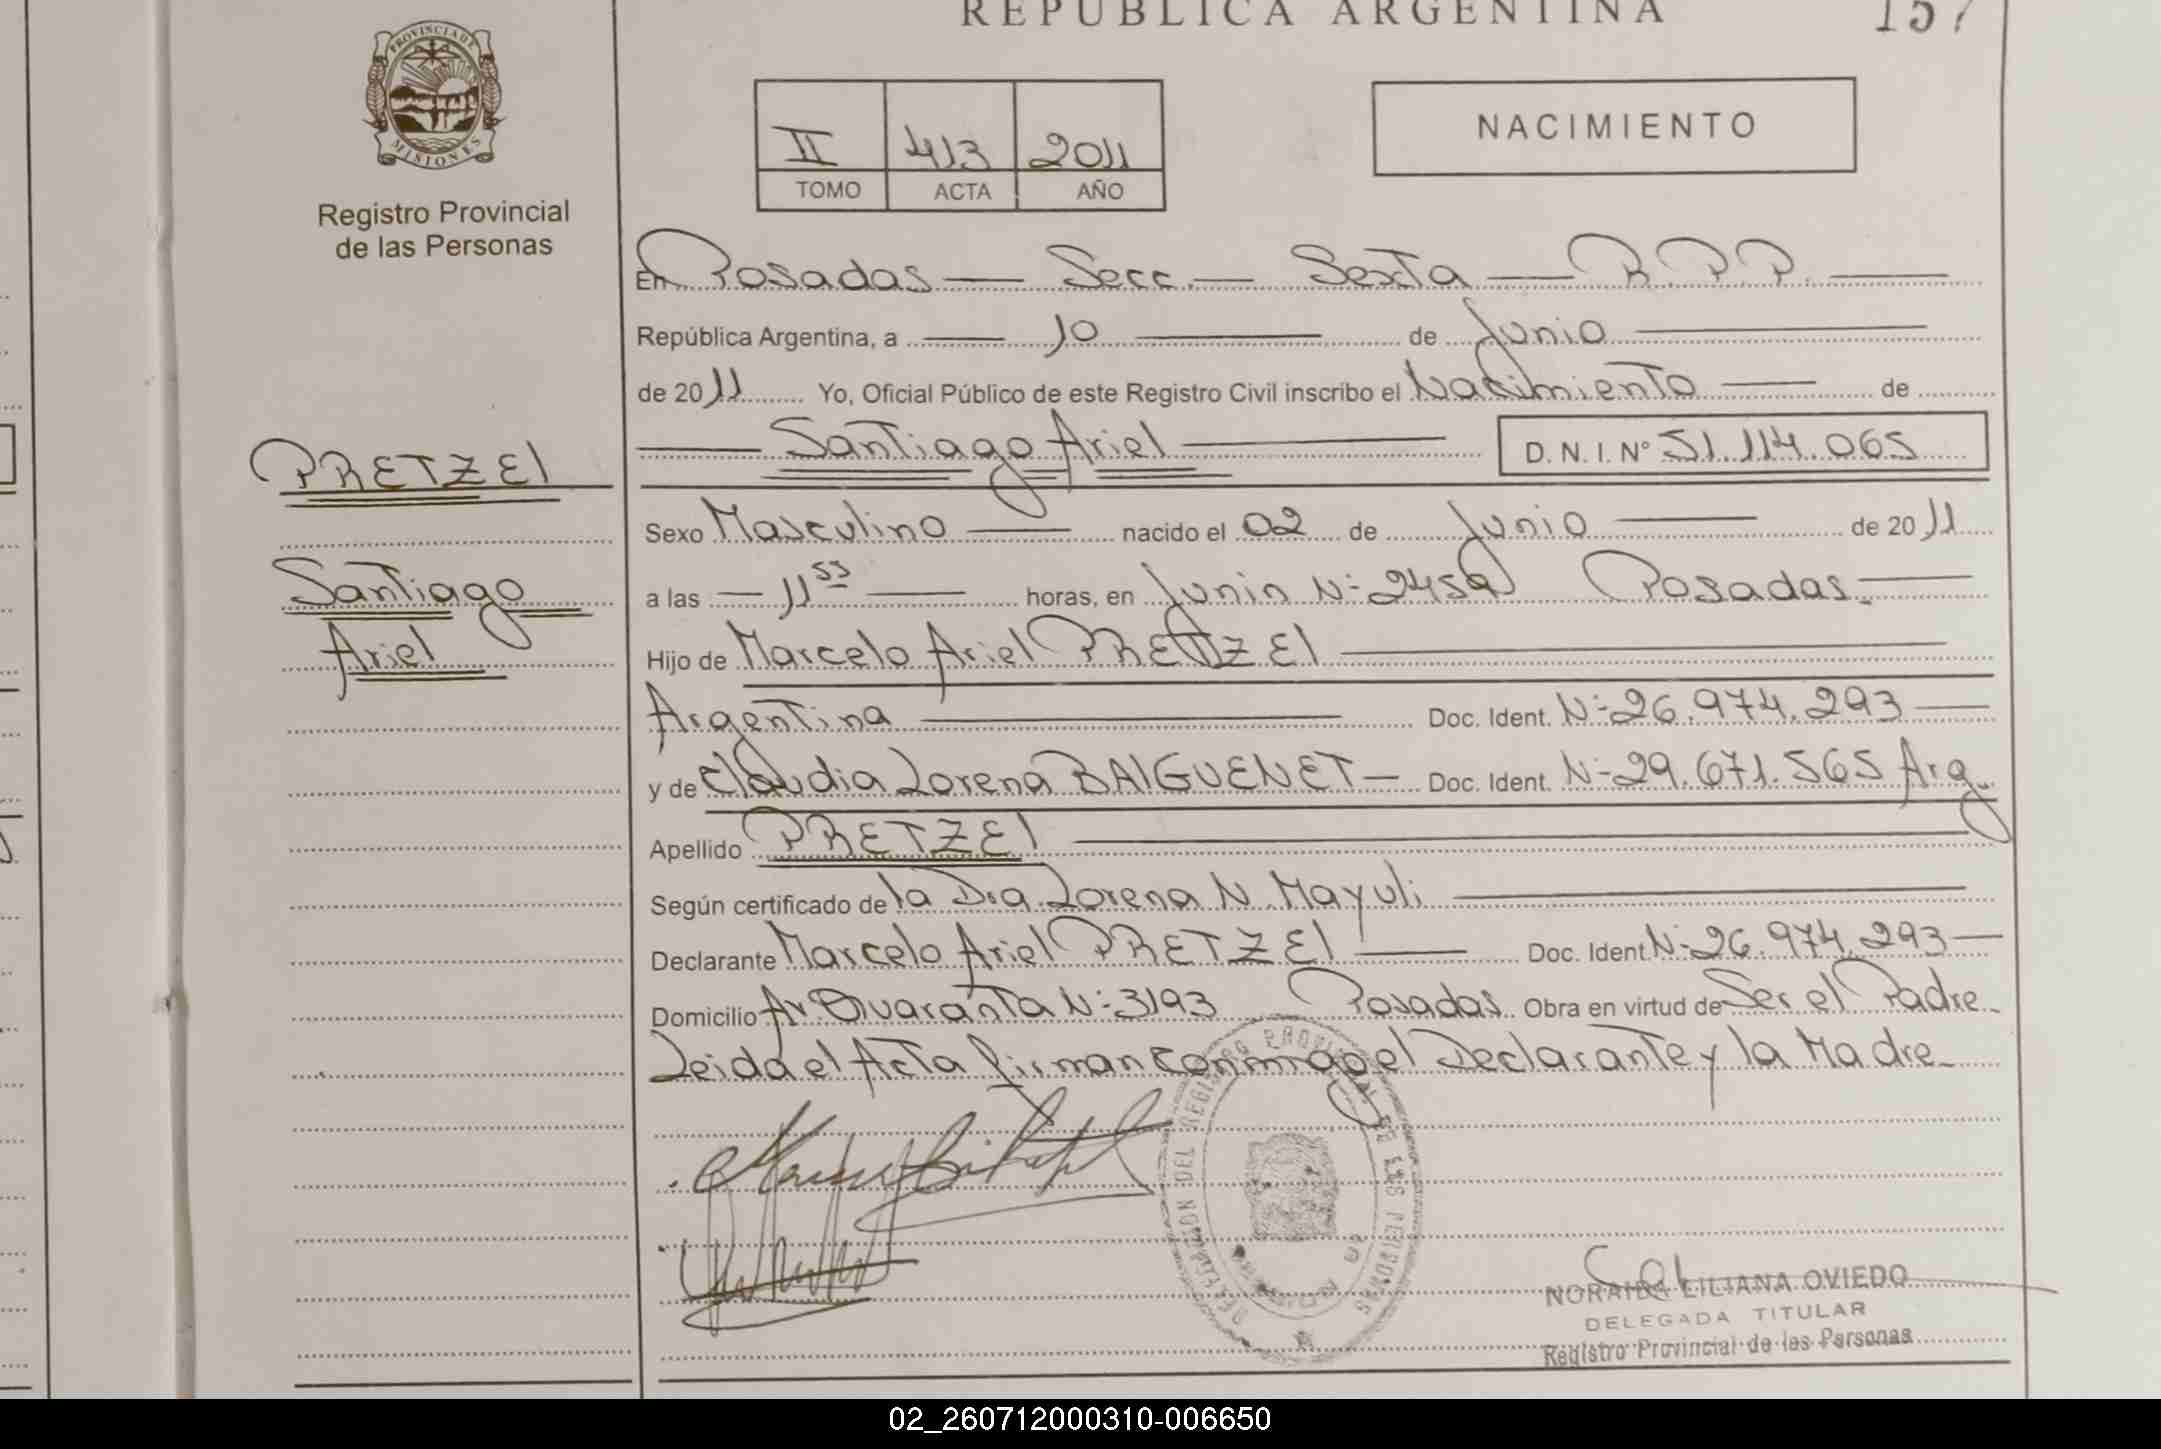 REPUBLICA ARGENTINA
157
PROVINCIA DE
MISIONES
Registro Provincial
de las Personas
II 413 2011
TOMO ACTA AÑO
NACIMIENTO
En Posadas — Secc. — Sexta — R.P.P. —
República Argentina, a — 10 — de Junio —
de 2011 Yo, Oficial Público de este Registro Civil inscribo el Nacimiento — de
— Santiago Ariel — D. N. I. Nº 51.114.065
PRETZEl
Santiago
Ariel
Sexo Masculino — nacido el 02 de Junio — de 2011
a las — 11 55 — horas, en Junin Nº 2459 Posadas. —
Hijo de Marcelo Ariel PRETZEl —
Argentina — Doc. Ident. Nº 26.974.293 —
y de Claudia Lorena BAIGUENET — Doc. Ident. Nº 29.671.565 Arg.
Apellido PRETZEl —
Según certificado de la Dra. Lorena N. Mayuli —
Declarante Marcelo Ariel PRETZEl — Doc. Ident. Nº 26.974.293 —
Domicilio Av. Quaranta Nº 3193 Posadas. Obra en virtud de Ser el Padre
Leida el Acta firman conmigo el Declarante y la Madre
NORAIDA LILIANA OVIEDO
DELEGADA TITULAR
Registro Provincial de las Personas
02_260712000310-006650